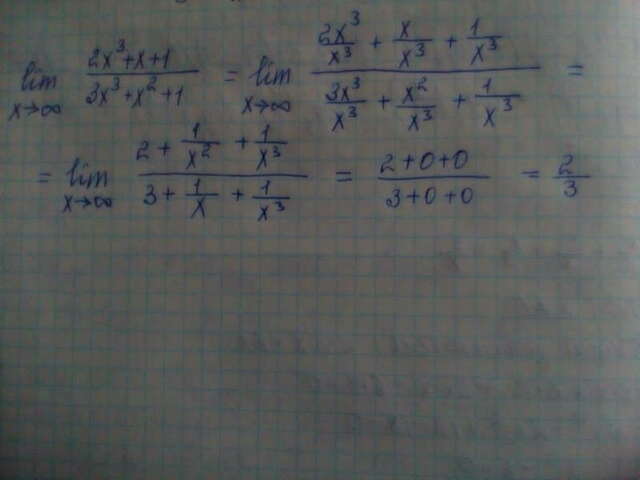 lim x→∞ (2x³+x+1)/(3x³+x²+1) = lim x→∞ (2x³/x³ + x/x³ + 1/x³)/(3x³/x³ + x²/x³ + 1/x³) =
= lim x→∞ (2 + 1/x² + 1/x³)/(3 + 1/x + 1/x³) = (2+0+0)/(3+0+0) = 2/3